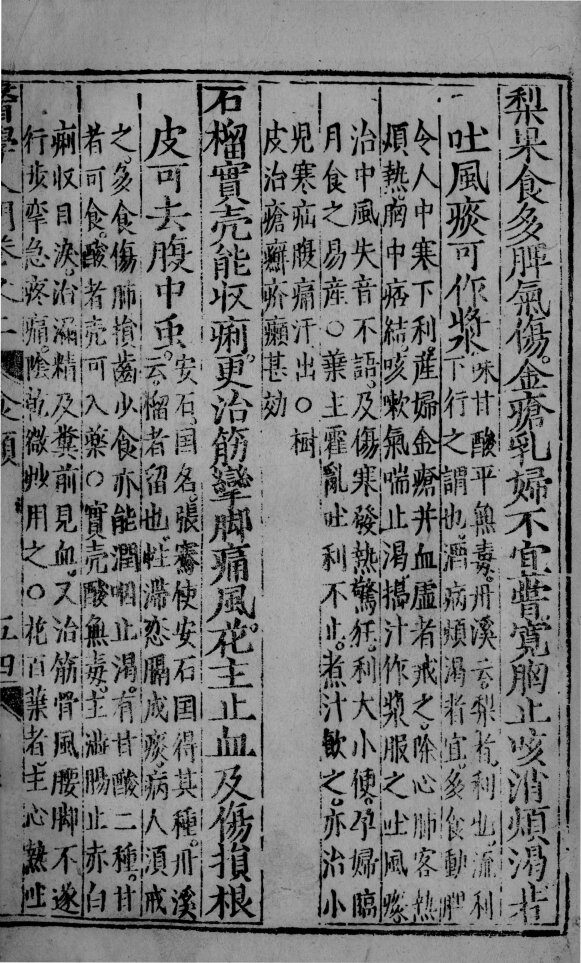 梨果食多脾氣傷。金瘡乳婦不宜嘗。寬胸止咳消煩渴。若
吐風痰可作漿。
味甘酸平無毒。丹溪云。梨者。利也。流利
下行之謂也。酒病煩渴者宜。多食動脾
令人中寒下利。産婦金瘡并血虛者戒之。除心肺客熱
煩熱。胸中痞結咳嗽氣喘止渴。搗汁作漿服之吐風痰。
治中風失音不語。及傷寒發熱驚狂。利大小便。孕婦臨
月食之易産。○葉主霍亂吐利不止。煮汁飲之。亦治小
兒寒疝腹痛汗出○樹
皮治瘡癬疥癩甚効
石榴實壳能收痢。更治筋攣脚痛風。花主止血及傷損。根
皮可去腹中虫。
安石。国名。張騫使安石国得其種。丹溪
云。榴者留也。性滯恋膈成痰。病人須戒
之。多食傷肺損齒。少食亦能潤咽止渴。有甘酸二種。甘
者可食。酸者壳可入藥○實壳酸無毒。主澁腸止赤白
痢收目淚。治漏精及糞前見血。又治筋骨風腰脚不遂
行步攣急疼痛。陰乾微炒用之○花百葉者。主心熱吐
醫學入門卷之二 食類 五四